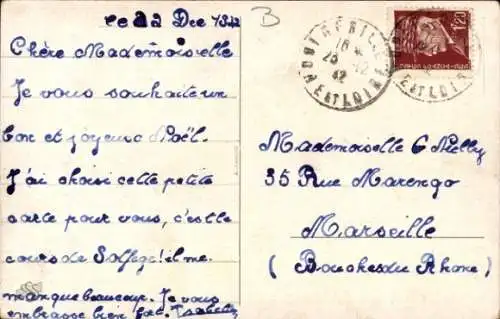 le 22 Dec 1942
Chère Mademoiselle
Je vous souhaite un
bon et joyeux Noël.
J'ai choisi cette petite
carte pour vous, c'est le
cours de Solfège! el me
manque beaucoup. Je vous
embrasse bien fort. Isabelle
B
25 12
42
E ET LOIR
1F20
Mademoiselle G
35 Rue Marengo
Marseille
(Bouches du Rhone)